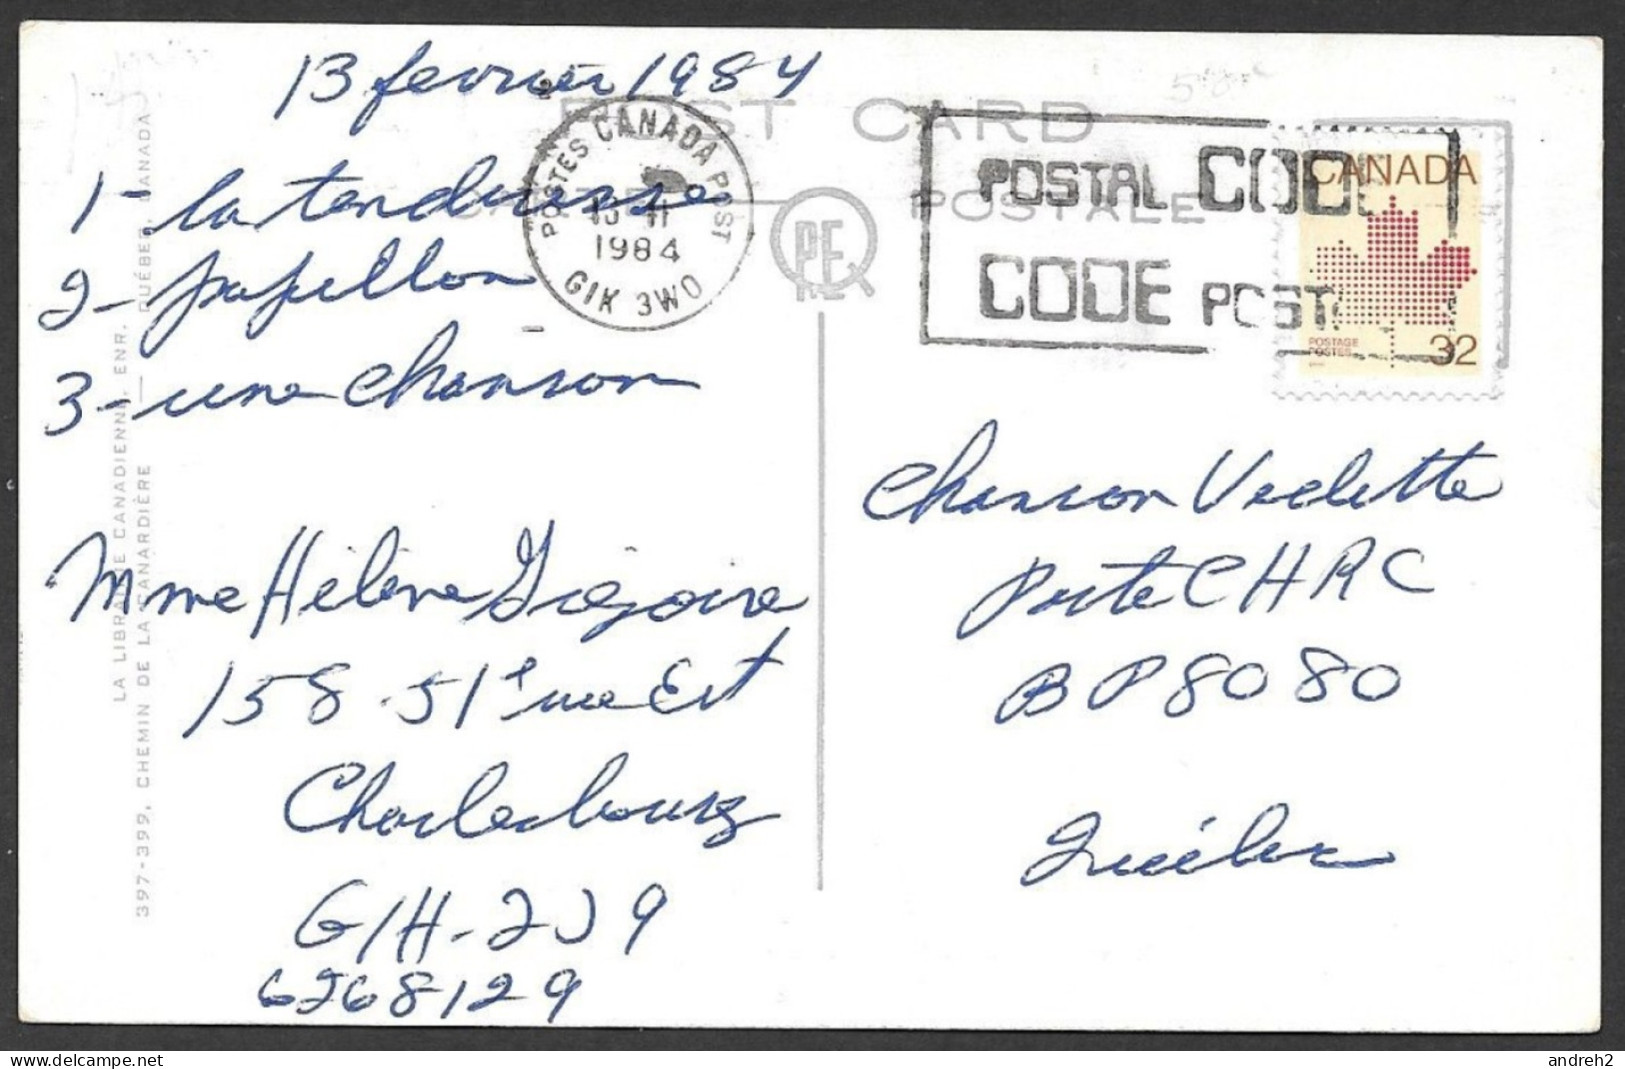 13 fevrier 1984
1- la tendresse
2- papillon
3- une chanson
Mme Hélène Grégoire
158-51e rue Est
Charlesbourg
G1H-2J9
6268129
POST CARD
CARTE POSTALE
PEQ
POSTES CANADA POST
13 II
1984
G1K 3W0
POSTAL CODE
CODE POSTAL
CANADA
POSTAGE
POSTES
32
Chanson Vedette
Poste CHRC
BP 8080
Québec
LA LIBRAIRIE CANADIENNE, ENR.
397-399, CHEMIN DE LA CANARDIÈRE — QUÉBEC, CANADA
andreh2